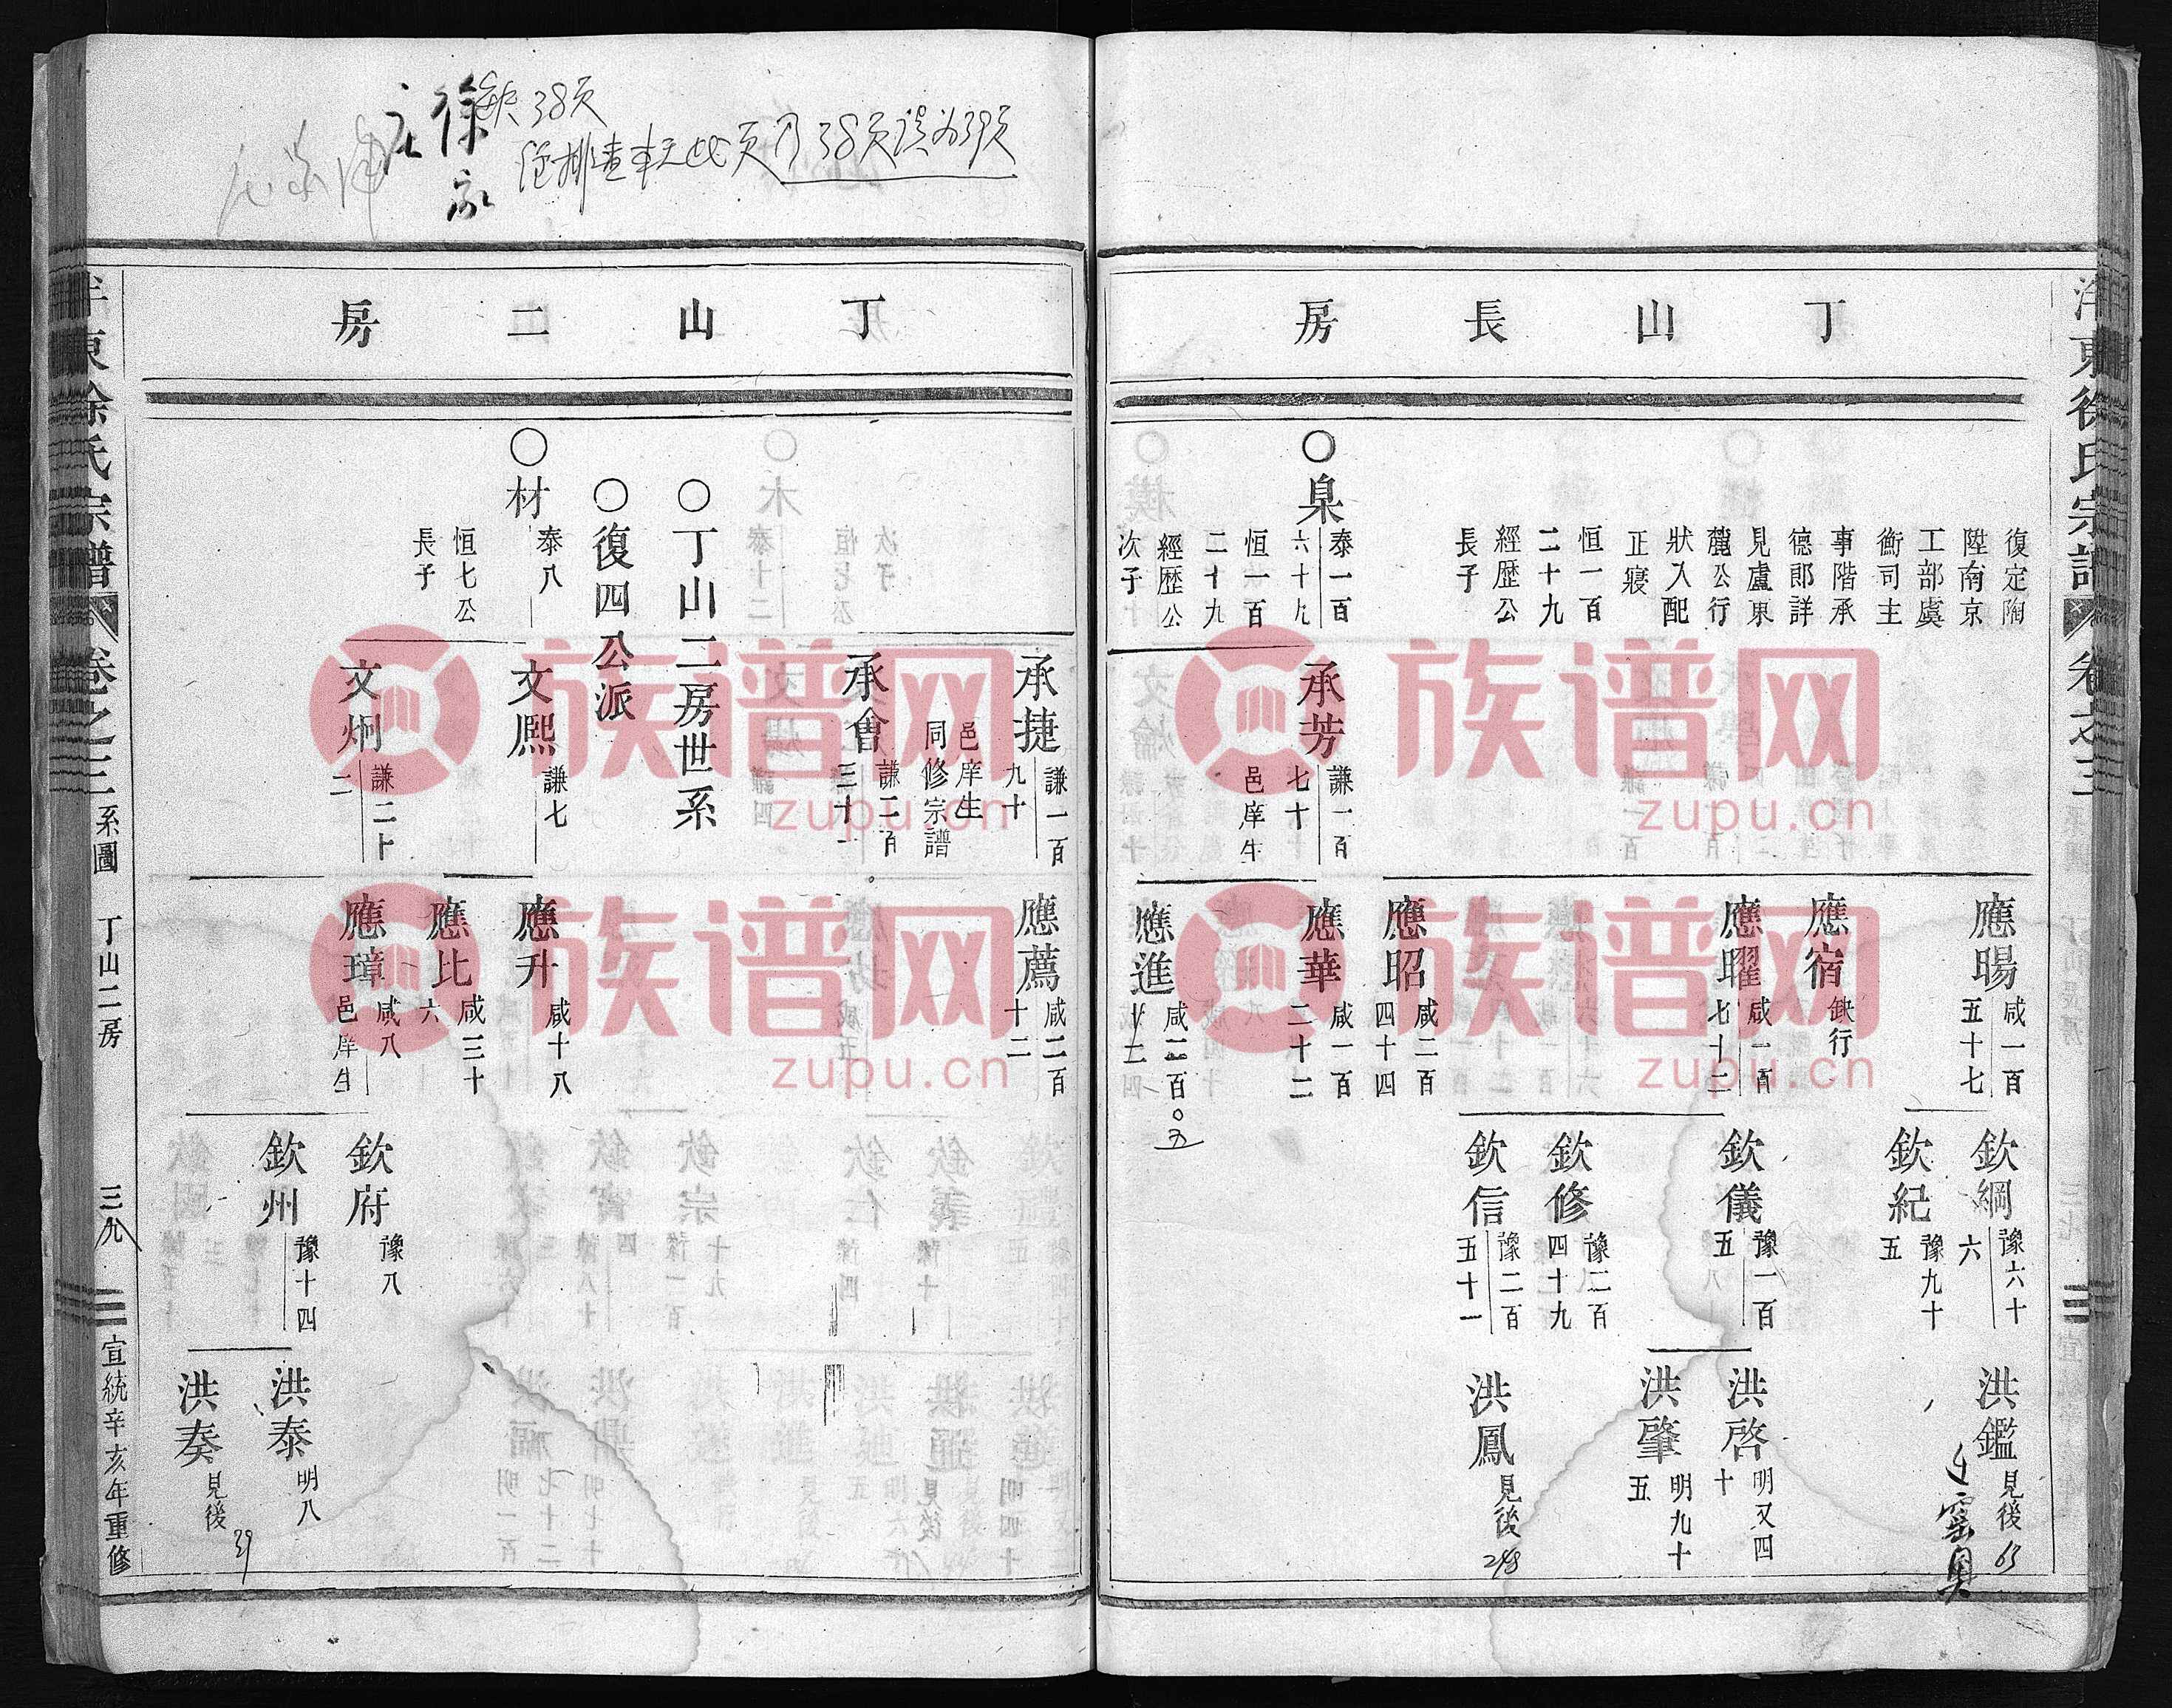 丁山長房
復定陶
陞南京
工部虞
衡司主
事階承
德郎詳
見盧東
麓公行
狀入配
正寢
恒一百
二十九
經歷公
長子
○臬
泰一百
六十九
恒一百
二十九
經歷公
次子
承芳
謙一百
七十
邑庠生
應暘
咸一百
五十七
應宿
缺行
應曜
咸一百
七十二
應昭
咸二百
四十四
應華
咸一百
二十二
應進
咸二百
欽綱
豫六十
六
欽紀
豫九十
五
欽儀
豫一百
五
欽修
豫二百
四十九
欽信
豫二百
五十一
洪鑑
見後
63
洪啓
明又四
十
洪肇
明九十
五
洪鳳
見後
248
徐家
缺38页
38页误为39页
丁山二房
承捷
謙一百
九十
邑庠生
同修宗譜
承會
謙二百
三十一
○丁山二房世系
○復四公派
○材
泰八
恒七公
長子
文熙
謙七
文炯
謙二十
二
應薦
咸二百
十二
應升
咸十八
應比
咸三十
六
應璋
咸八
邑庠生
欽府
豫八
欽州
豫十四
洪泰
明八
洪奏
見後
39
東徐氏宗譜
卷之三
系圖
丁山二房
三九
宣統辛亥年重修
族谱网
zupu.cn
族谱网
zupu.cn
族谱网
zupu.cn
族谱网
zupu.cn